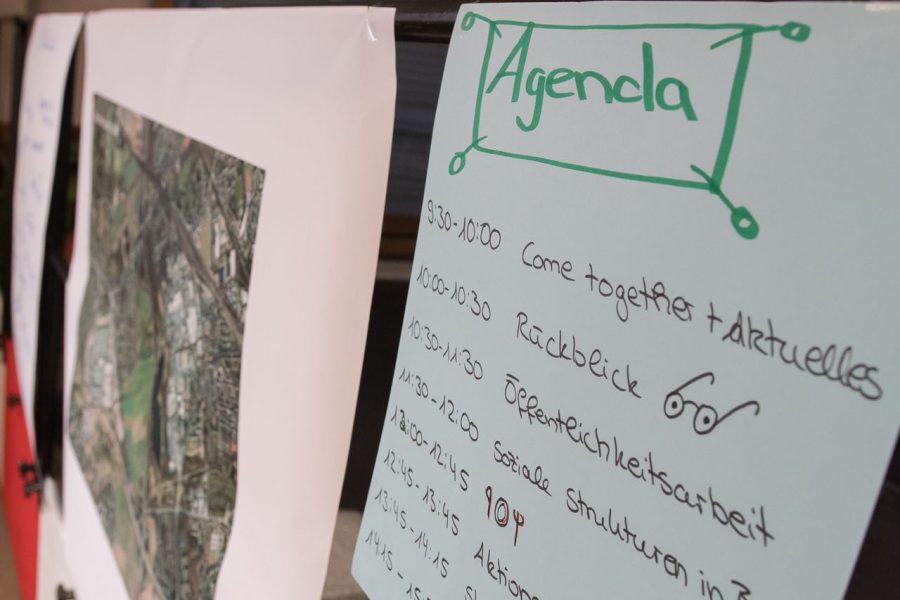 Agenda
9:30-10:00 Come together + Aktuelles
10:00-10:30 Rückblick
10:30-11:30 Öffentlichkeitsarbeit
11:30-12:00 Soziale Strukturen in
12:00-12:45
12:45-13:45 Aktions
13:45-14:15
1415-